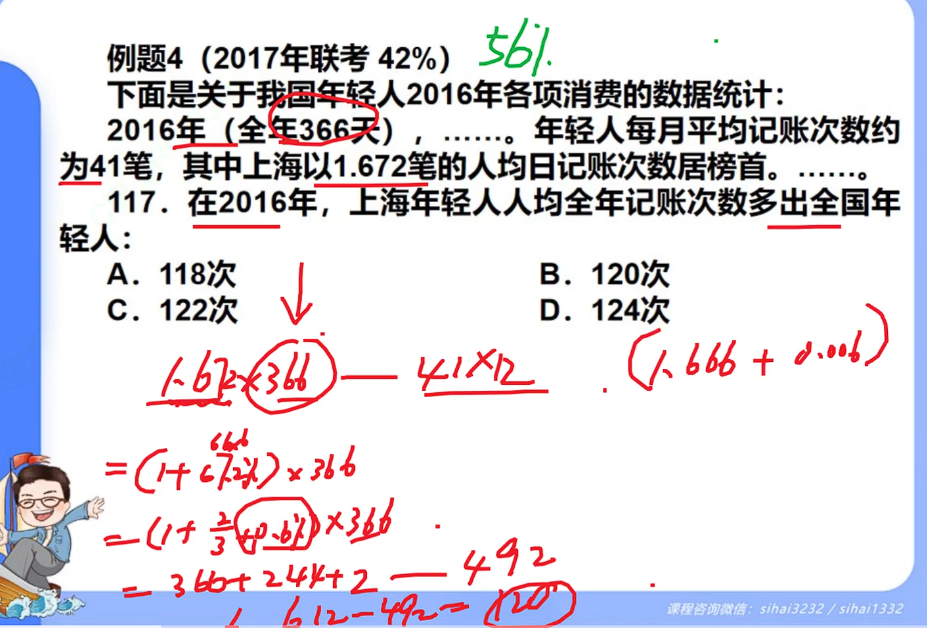 例题4（2017年联考 42%） 56%
下面是关于我国年轻人2016年各项消费的数据统计：
2016年（全年366天），……。年轻人每月平均记账次数约
为41笔，其中上海以1.672笔的人均日记账次数居榜首。……。
117．在2016年，上海年轻人人均全年记账次数多出全国年
轻人：
A．118次 B．120次
C．122次 D．124次
1.672×366 — 41×12 (1.666 + 0.006)
66.6
=(1+67.2%)×366
=(1+2/3+0.6%)×366
=366+244+2 — 492
612-492=120
课程咨询微信：sihai3232 / sihai1332